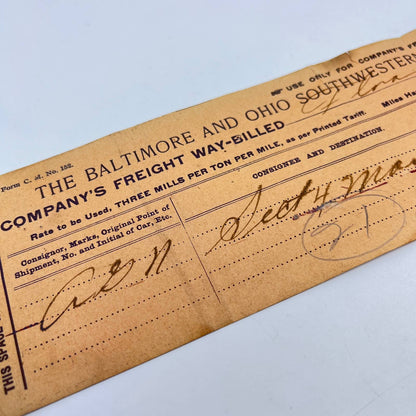 Form C. d. No. 152.
☛ USE ONLY FOR COMPANY'S FR
THE BALTIMORE AND OHIO SOUTHWESTERN
COMPANY'S FREIGHT WAY-BILLED
Miles Ha
Rate to be Used, THREE MILLS PER TON PER MILE, as per Printed Tariff.
Consignor, Marks, Original Point of
Shipment, No. and Initial of Car, Etc.
CONSIGNEE AND DESTINATION.
THIS SPACE